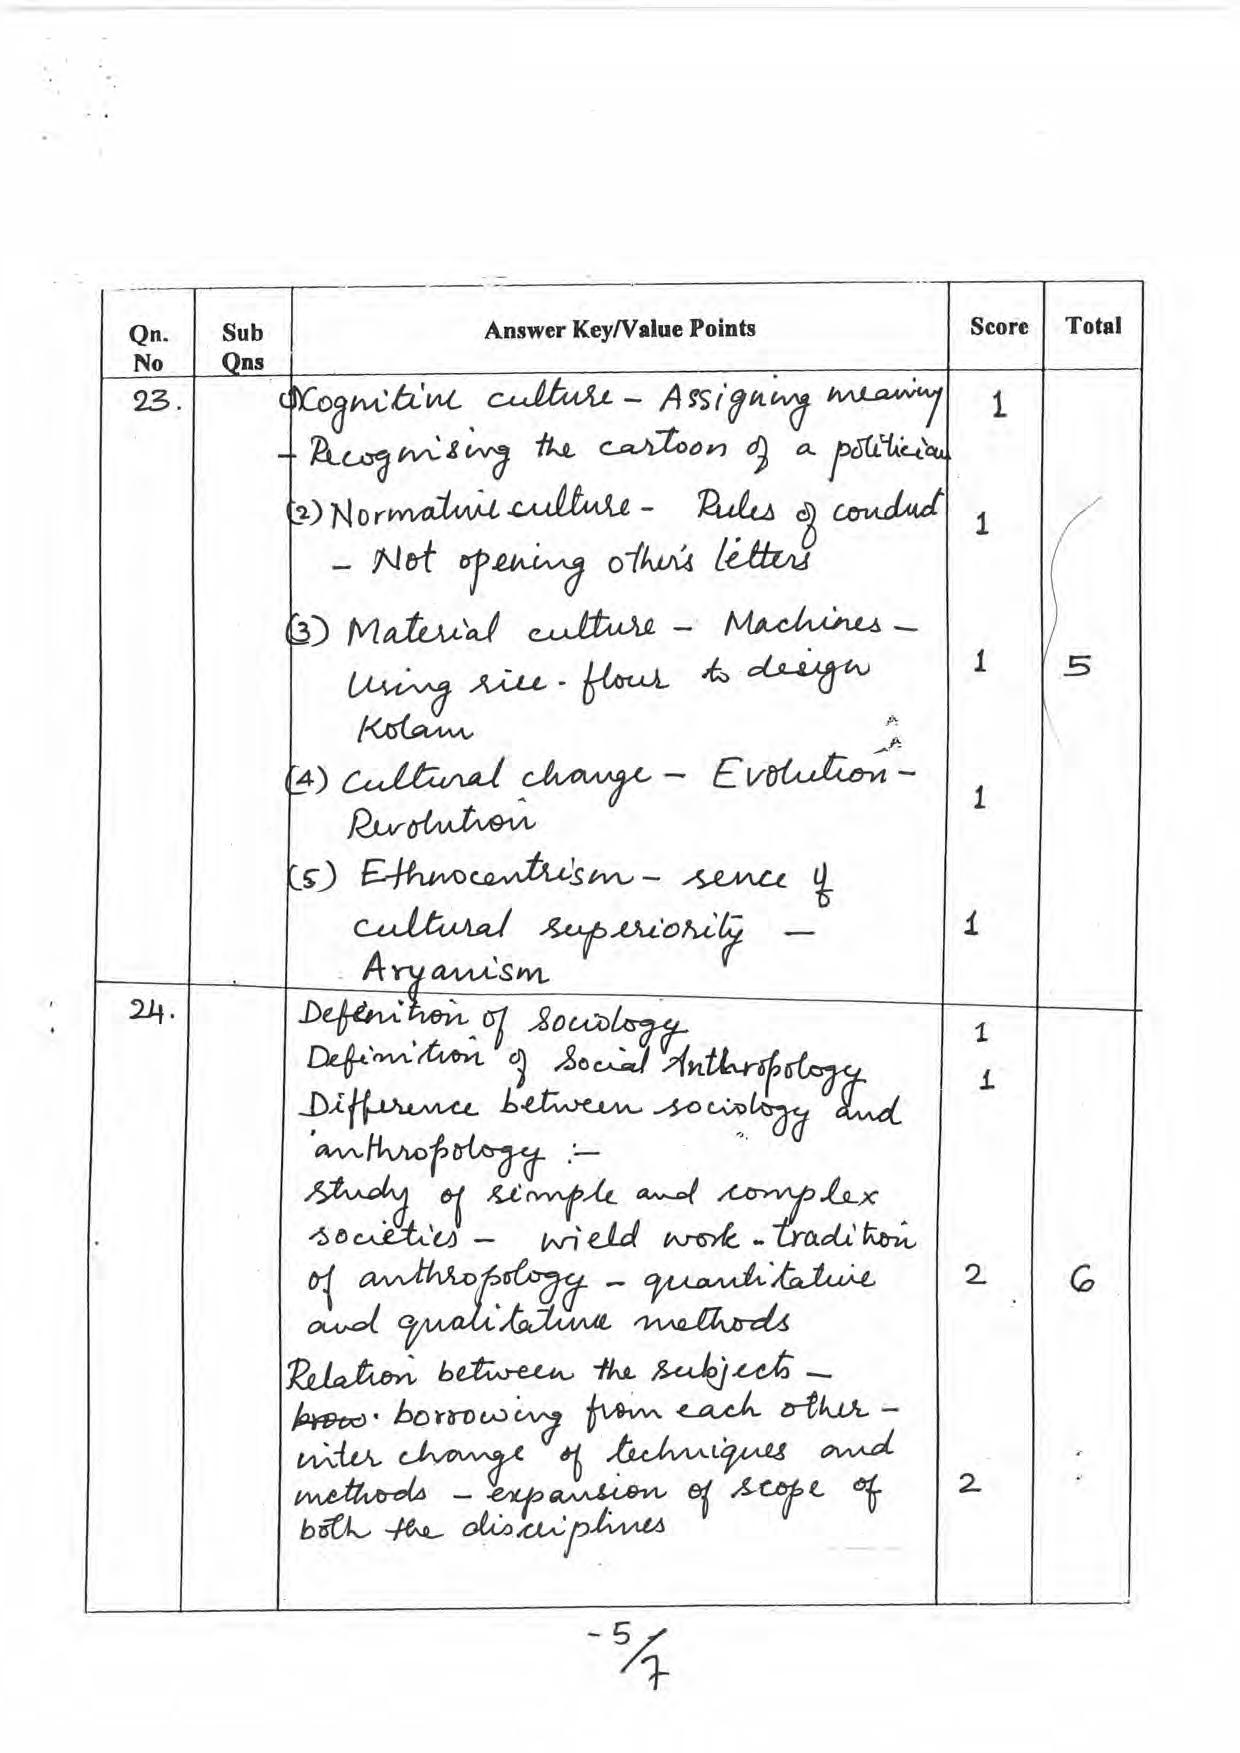 Qn. No Sub Qns Answer Key/Value Points Score Total
23. (1) Cognitive culture - Assigning meaning 1
- Recognising the cartoon of a politician
(2) Normative culture - Rules of conduct 1
- Not opening other's letters
(3) Material culture - Machines -
Using rice-flour to design 1 5
Kolam
(4) Cultural change - Evolution - 1
Revolution
(5) Ethnocentrism - sence of
cultural superiority - 1
Aryanism
24. Definition of Sociology 1
Definition of Social Anthropology 1
Difference between sociology and
anthropology :-
study of simple and complex
societies - wield work - tradition
of anthropology - quantitative 2 6
and qualitative methods
Relation between the subjects -
borrowing from each other -
inter change of techniques and
methods - expansion of scope of 2
both the disciplines
-5/7